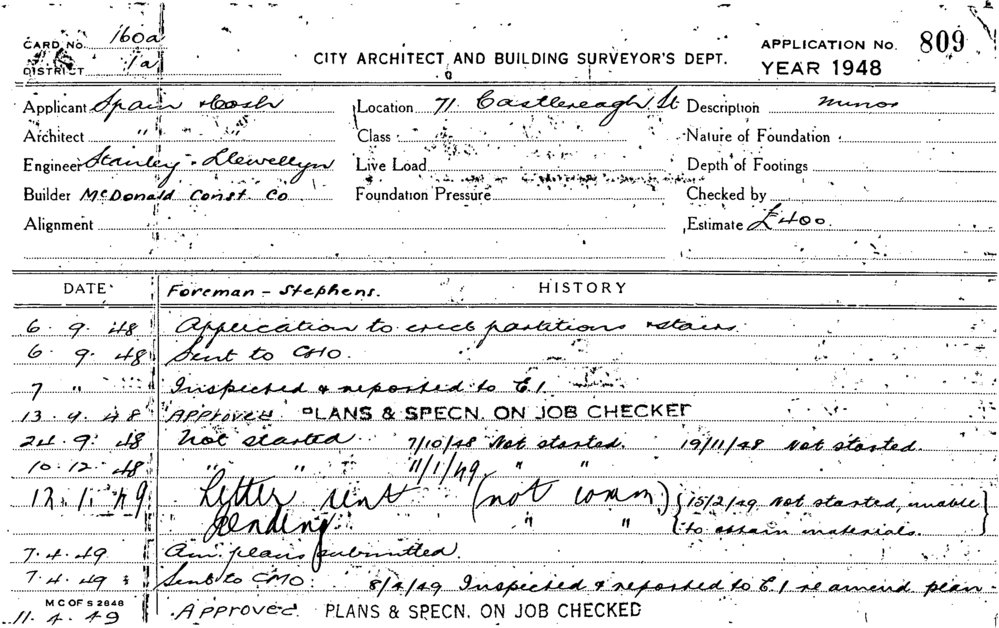 CARD No. 160a
DISTRICT 1a
CITY ARCHITECT AND BUILDING SURVEYOR'S DEPT.
APPLICATION No. 809
YEAR 1948
Applicant Spain & Cosh Location 71 Castlereagh St Description minor
Architect " " Class Nature of Foundation
Engineer Stanley & Llewellyn Live Load Depth of Footings
Builder McDonald Const. Co Foundation Pressure Checked by
Alignment Estimate £400.
DATE Foreman - Stephens. HISTORY
6. 9. 48 Application to erect partitions & stairs.
6. 9. 48 Sent to CMO.
7 " Inspected & reported to E.1.
13. 9. 48 APPROVED PLANS & SPECN. ON JOB CHECKED
24. 9. 48 Not started 7/10/48 Not started. 19/11/48 Not started.
10. 12. 48 " " 11/1/49 " "
12. 1. 49 Letter sent (not comm.) {15/2/49 Not started, unable}
pending " " {to obtain materials.}
7. 4. 49 Am. plans submitted.
7. 4. 49 Sent to CMO. 8/4/49 Inspected & reported to E.1 re amend plan
M C OF S 2848
11. 4. 49 APPROVED PLANS & SPECN. ON JOB CHECKED